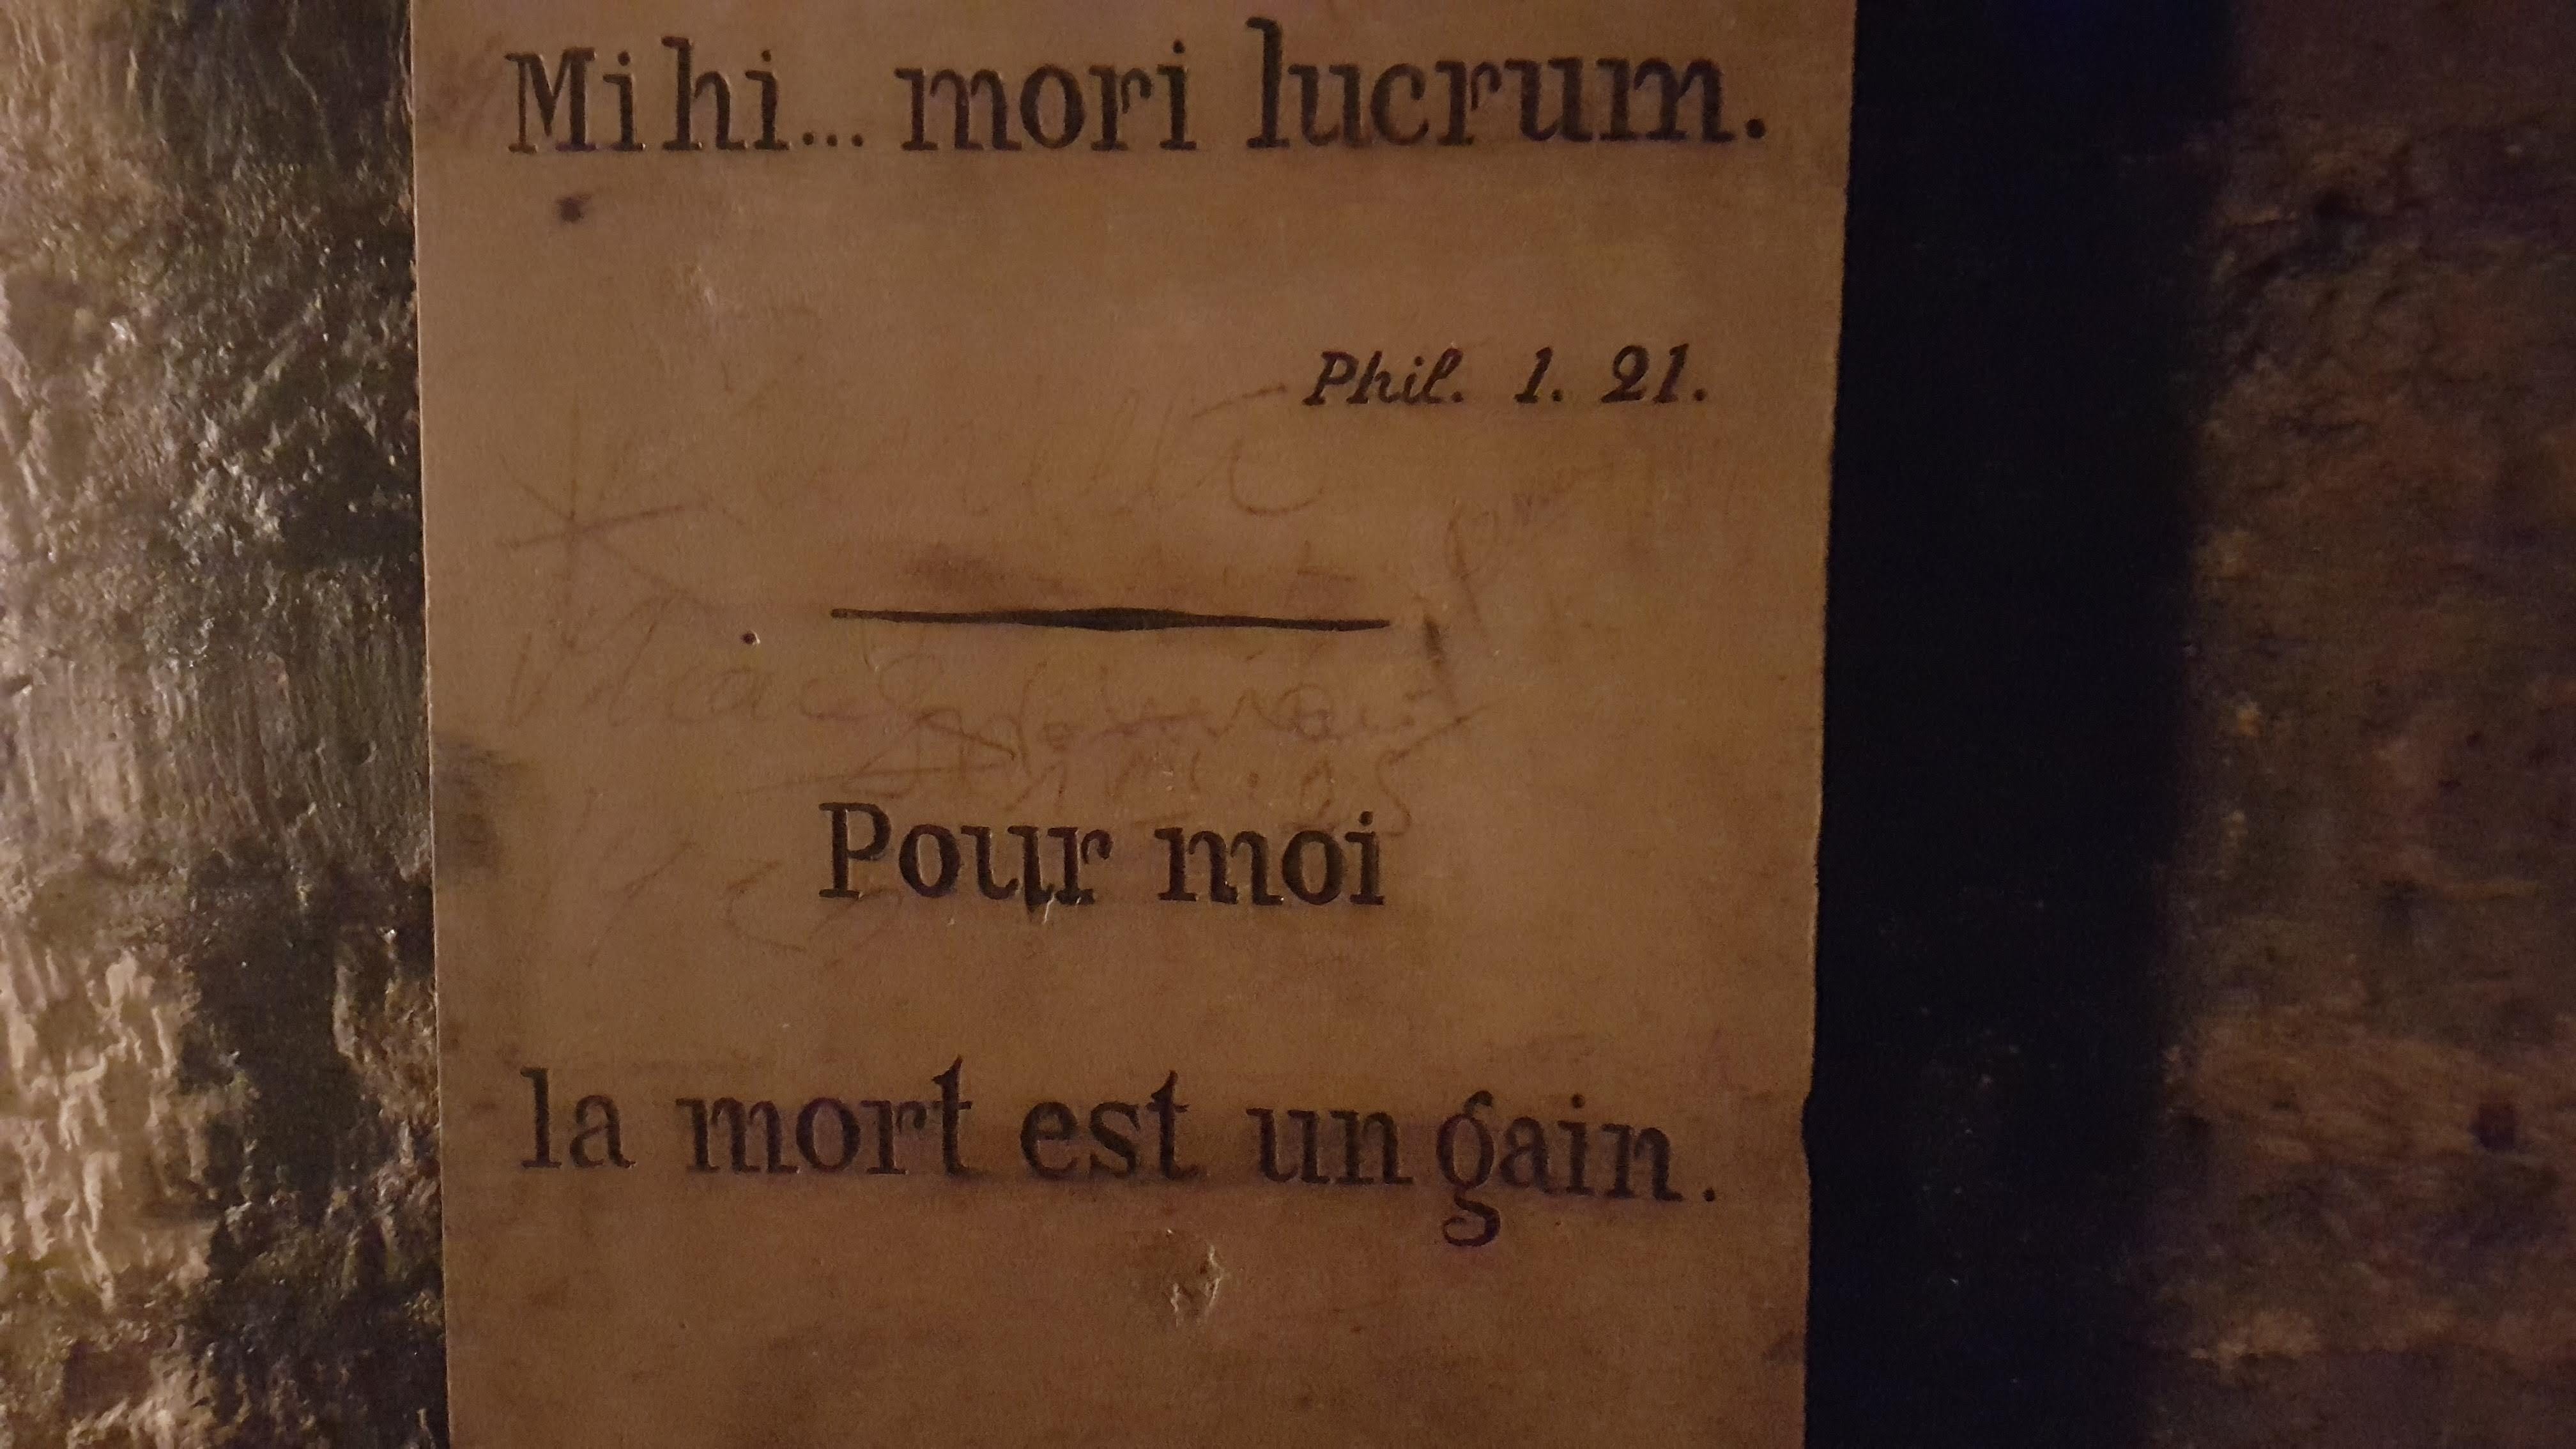 Mihi... mori lucrum.
Phil. 1. 21.
Pour moi
la mort est un gain.